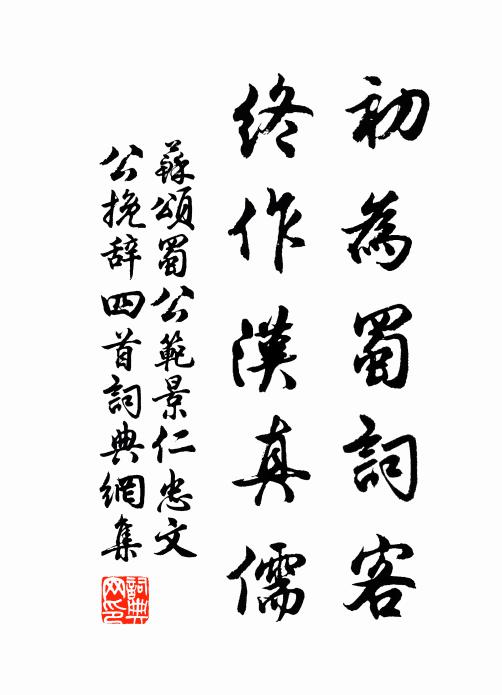 初為蜀詞客
終作漢真儒
蘇頌蜀公範景仁忠文
公挽辞四首詞典網集
詞典
网印